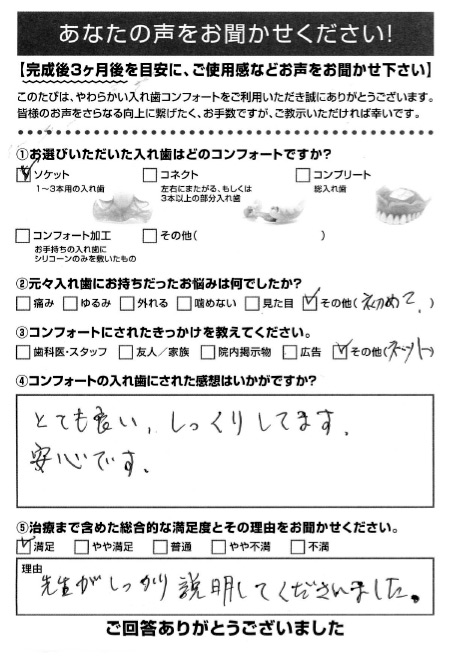 あなたの声をお聞かせください!
【完成後3ヶ月後を目安に、ご使用感などお声をお聞かせ下さい】
このたびは、やわらかい入れ歯コンフォートをご利用いただき誠にありがとうございます。
皆様のお声をさらなる向上に繋げたく、お手数ですが、ご教示いただければ幸いです。
①お選びいただいた入れ歯はどのコンフォートですか?
☑ソケット □コネクト □コンプリート
1〜3本用の入れ歯 左右にまたがる、もしくは 総入れ歯
3本以上の部分入れ歯
□コンフォート加工 □その他( )
お手持ちの入れ歯に
シリコーンのみを敷いたもの
②元々入れ歯にお持ちだったお悩みは何でしたか?
□痛み □ゆるみ □外れる □噛めない □見た目 ☑その他(初めて.)
③コンフォートにされたきっかけを教えてください。
□歯科医・スタッフ □友人/家族 □院内掲示物 □広告 ☑その他(ネット)
④コンフォートの入れ歯にされた感想はいかがですか?
とても良い、しっくりしてます.
安心です.
⑤治療まで含めた総合的な満足度とその理由をお聞かせください。
☑満足 □やや満足 □普通 □やや不満 □不満
理由
先生がしっかり説明してくださいました。
ご回答ありがとうございました